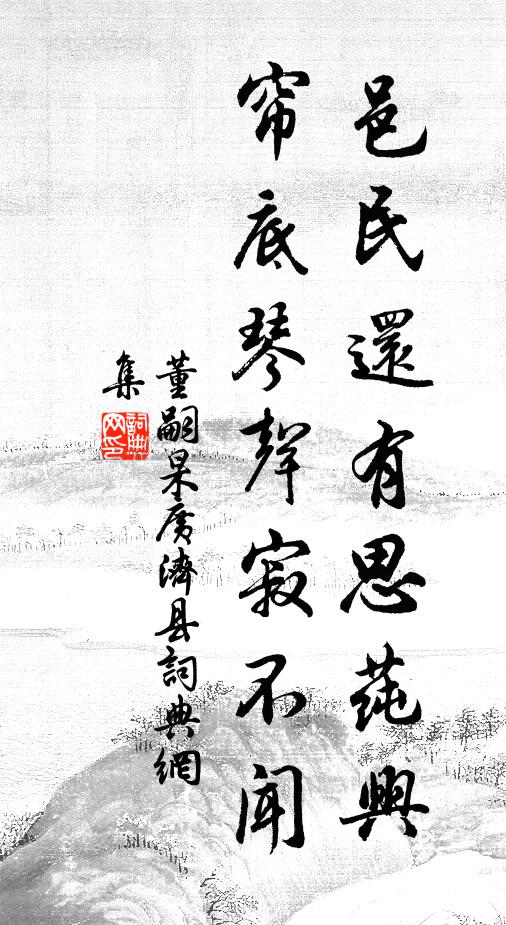 邑民還有思莼興
帘底琴聲寂不闻
董嗣杲廣濟县詞典網
集
詞典网印